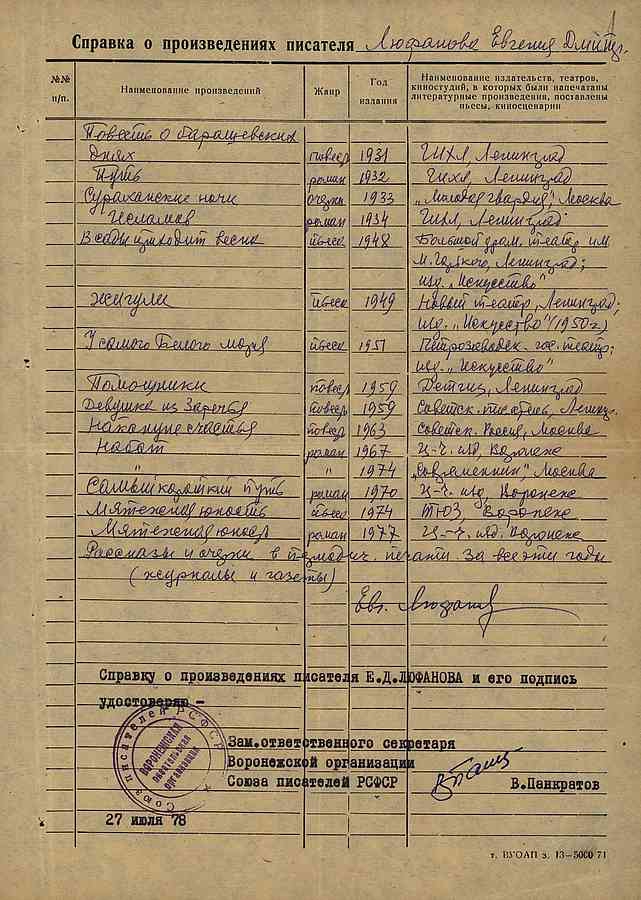 Справка о произведениях писателя Люфанова Евгения Дмитр.
№№ п/п.
Наименование произведений
Жанр
Год издания
Наименование издательств, театров,
киностудий, в которых были напечатаны
литературные произведения, поставлены
пьесы, киносценарии
Повесть о барашевских
днях повесть 1931 ГИХЛ, Ленинград
Путь роман 1932 ГИХЛ, Ленинград
Сураханские ночи очерки 1933 „Молодая гвардия", Москва
Исламов роман 1934 ГИХЛ, Ленинград
В сады приходит весна пьеса 1948 Большой драм. театр им.
М. Горького, Ленинград;
изд. „Искусство"
Жигули пьеса 1949 Новый театр, Ленинград;
изд. „Искусство" (1950 г.)
У самого Белого моря пьеса 1951 Петрозаводск. гос. театр;
изд. „Искусство"
Помощники повесть 1959 Детгиз, Ленинград
Девушка из Заречья повесть 1959 Советск. писатель, Ленингр.
Накануне счастья повесть 1963 Советск. Россия, Москва
Набат роман 1967 Ц-Ч. изд, Воронеж
" " 1974 „Современник", Москва
Самый короткий путь роман 1970 Ц-Ч. изд, Воронеж
Мятежная юность пьеса 1974 ТЮЗ, Воронеж
Мятежная юность роман 1977 Ц-Ч. изд. Воронеж
Рассказы и очерки в периодич. печати за все эти годы
(журналы и газеты)
Евг. Люфанов
Справку о произведениях писателя Е.Д.ЛЮФАНОВА и его подпись
удостоверяю -
Союз писателей РСФСР
ВОРОНЕЖСКАЯ
писательская
организация
Зам.ответственного секретаря
Воронежской организации
Союза писателей РСФСР
В.Панкратов
27 июля 78
т. ВУОАП з. 13—5000 71